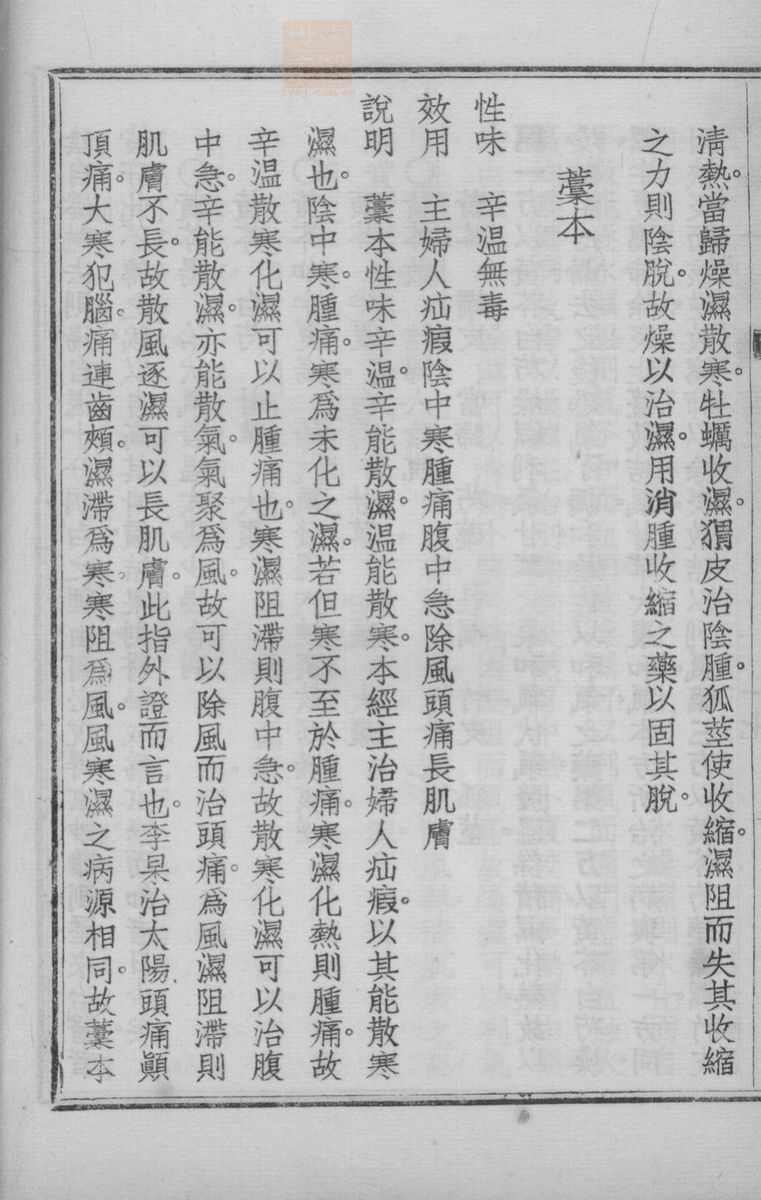 清熱。當歸燥濕散寒。牡蠣收濕。猬皮治陰腫。狐莖使收縮。濕阻而失其收縮
之力則陰脫。故燥以治濕。用消腫收縮之藥以固其脫。
藁本
性味　辛温無毒
效用　主婦人疝瘕陰中寒腫痛腹中急除風頭痛長肌膚
說明　藁本性味辛温。辛能散濕。温能散寒。本經主治婦人疝瘕。以其能散寒
濕也。陰中寒。腫痛。寒爲未化之濕。若但寒不至於腫痛。寒濕化熱則腫痛。故
辛温散寒化濕可以止腫痛也。寒濕阻滯則腹中急。故散寒化濕可以治腹
中急。辛能散濕。亦能散氣。氣聚爲風。故可以除風而治頭痛。爲風濕阻滯則
肌膚不長。故散風逐濕可以長肌膚。此指外證而言也。李杲治太陽頭痛顚
頂痛。大寒犯腦。痛連齒頰。濕滯爲寒。寒阻爲風。風寒濕之病源相同。故藁本